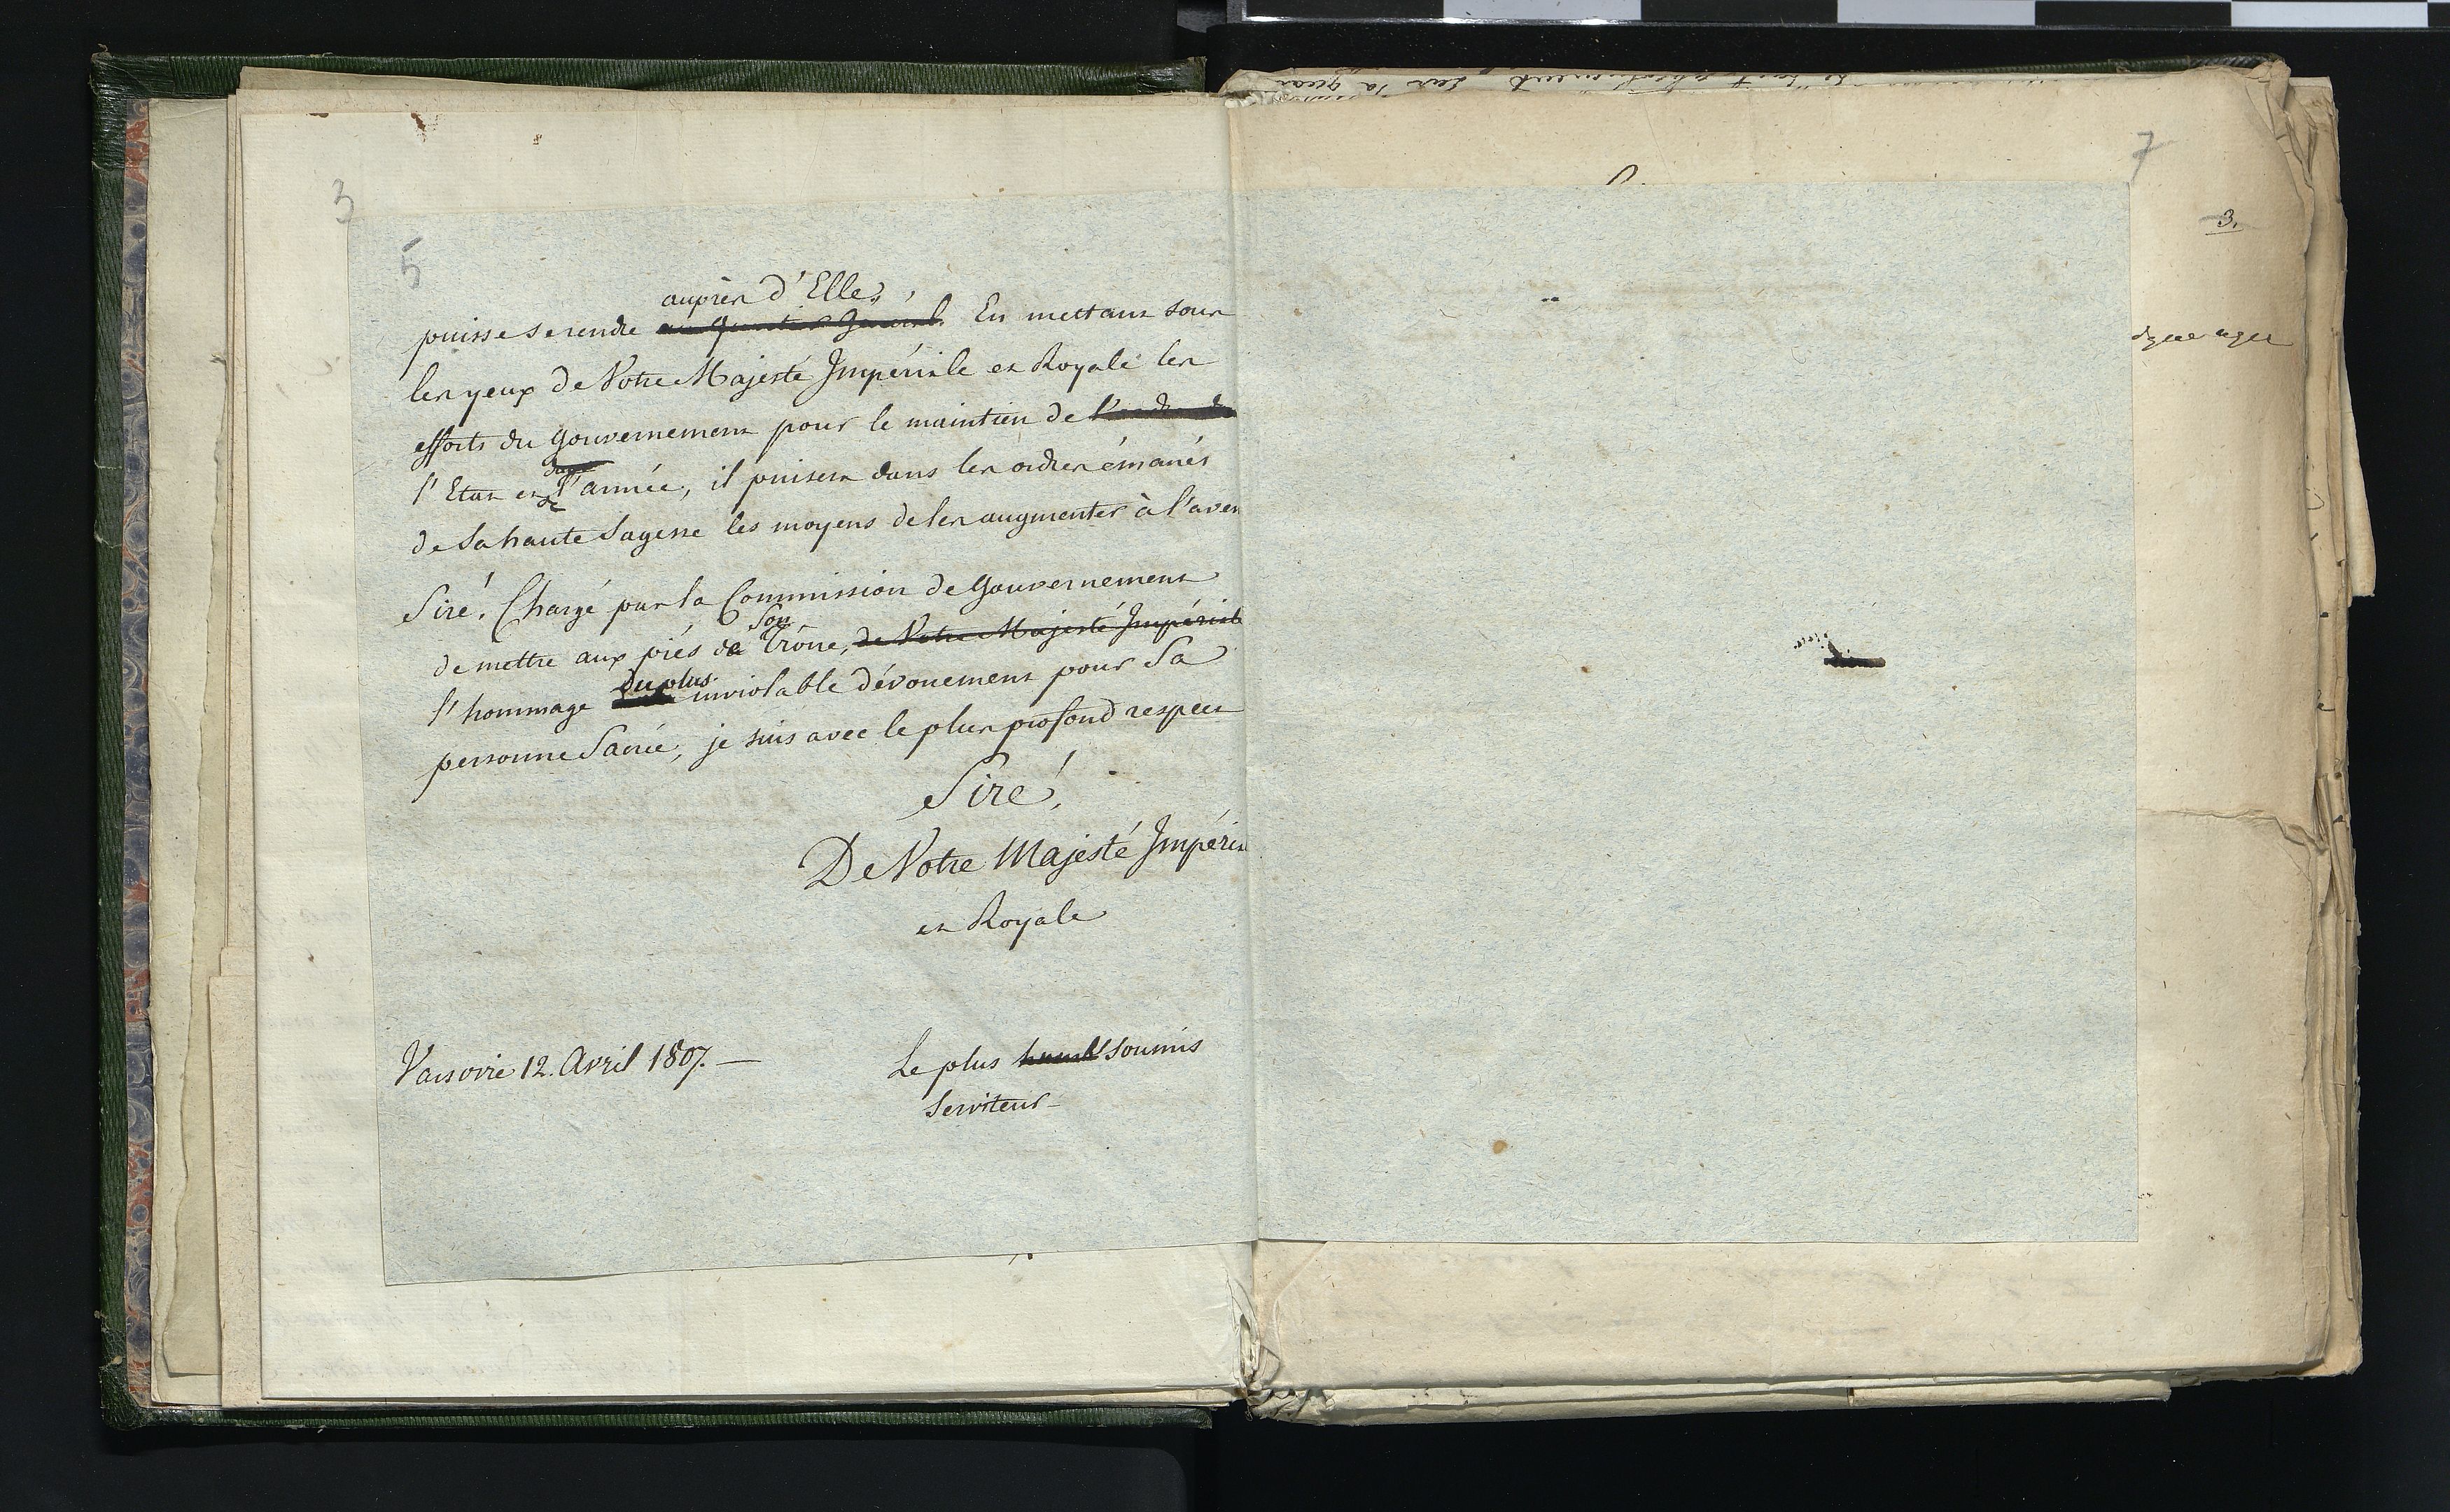 3
5
auprès d'Elle,
puisse se rendre au quartier Général. En mettant sous
les yeux de Votre Majesté Impériale et Royale les
efforts du Gouvernement pour le maintien de
l'Etat et de l'armée, il puisera dans les ordres émanés
de Sa haute Sagesse les moyens de les augmenter à l'aven
Sire! Chargé par la Commission de Gouvernement
Son
de mettre aux piés de Trône, de Votre Majesté Impériale
du plus
l'hommage inviolable dévouement pour Sa
personne Sacrée, je suis avec le plus profond respect
Sire!
De Votre Majesté Impéria
et Royale
Varsovie 12. Avril 1807. —
Le plus humb soumis
Serviteur
7
3.